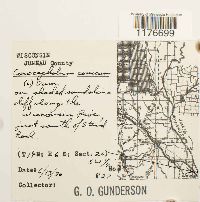 1176699
WISCONSIN
JUNEAU County
Conocephalum conicum
(L) Dum.
on shaded sandstone
cliff along the
Wisconsin River
just south of Stand
Rock
(T13N; R6E; Sect.
Date: 6/13/70 No
Collector: G. O. GUNDERSON